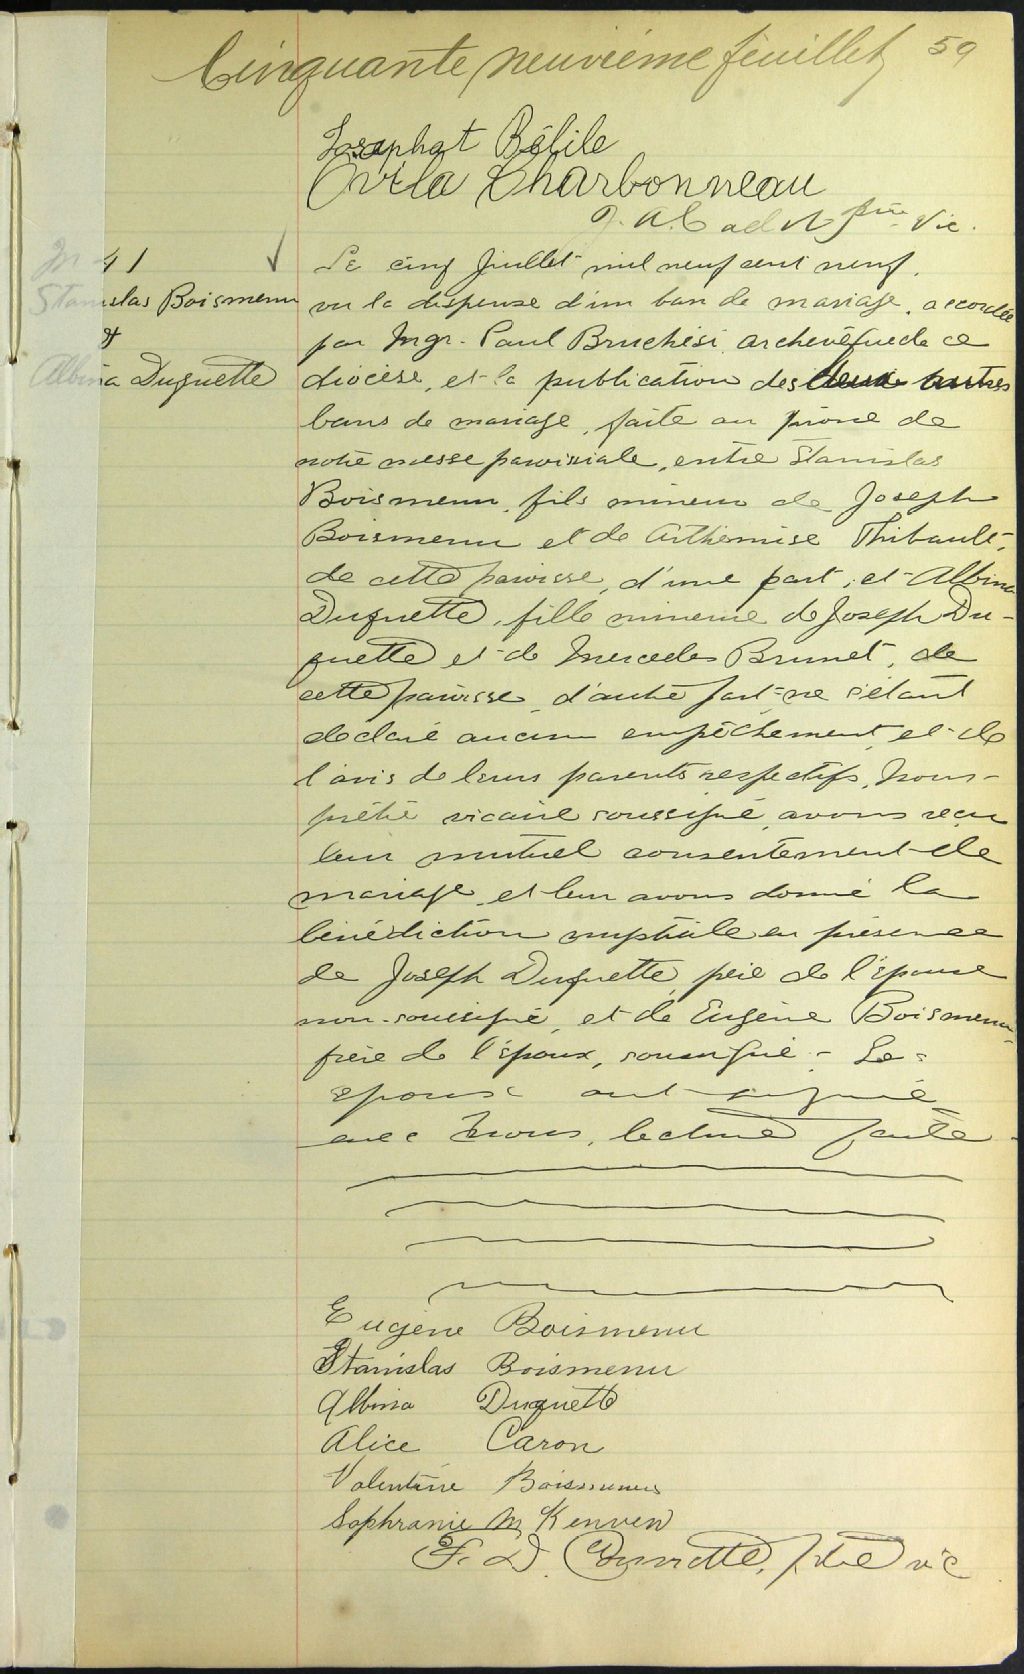 Cinquante neuvième feuillet 59
Josaphat Bélile
Ovila Charbonneau
ptre vic.
M 41
Stanislas Boismenu
&
Albina Duquette
Le cinq Juillet mil neuf cent neuf,
vu la dispense d'un ban de mariage, accordée
par Mgr. Paul Bruchési, archevêque de ce
diocèse, et la publication des deux autres
bans de mariage, faite au prône de
notre messe paroissiale, entre Stanislas
Boismenu, fils mineur de Joseph
Boismenu et de Arthémise Thibault,
de cette paroisse, d'une part; et Albina
Duquette, fille mineure de Joseph Du-
quette et de Mercedes Brunet, de
cette paroisse, d'autre part ne s'étant
déclaré aucun empêchement, et de
l'avis de leurs parents respectifs, Nous
prêtre vicaire soussigné, avons reçu
leur mutuel consentement de
mariage, et leur avons donné la
bénédiction nuptiale en présence
de Joseph Duquette, père de l'épouse
non-soussigné, et de Eugène Boismenu,
frère de l'époux, soussigné - Les
époux ont signé
avec nous, lecture faite.
Eugène Boismenu
Stanislas Boismenu
Albina Duquette
Alice Caron
Valentine Boismenu
Sophranie M Kenven
F. D. ptre vic